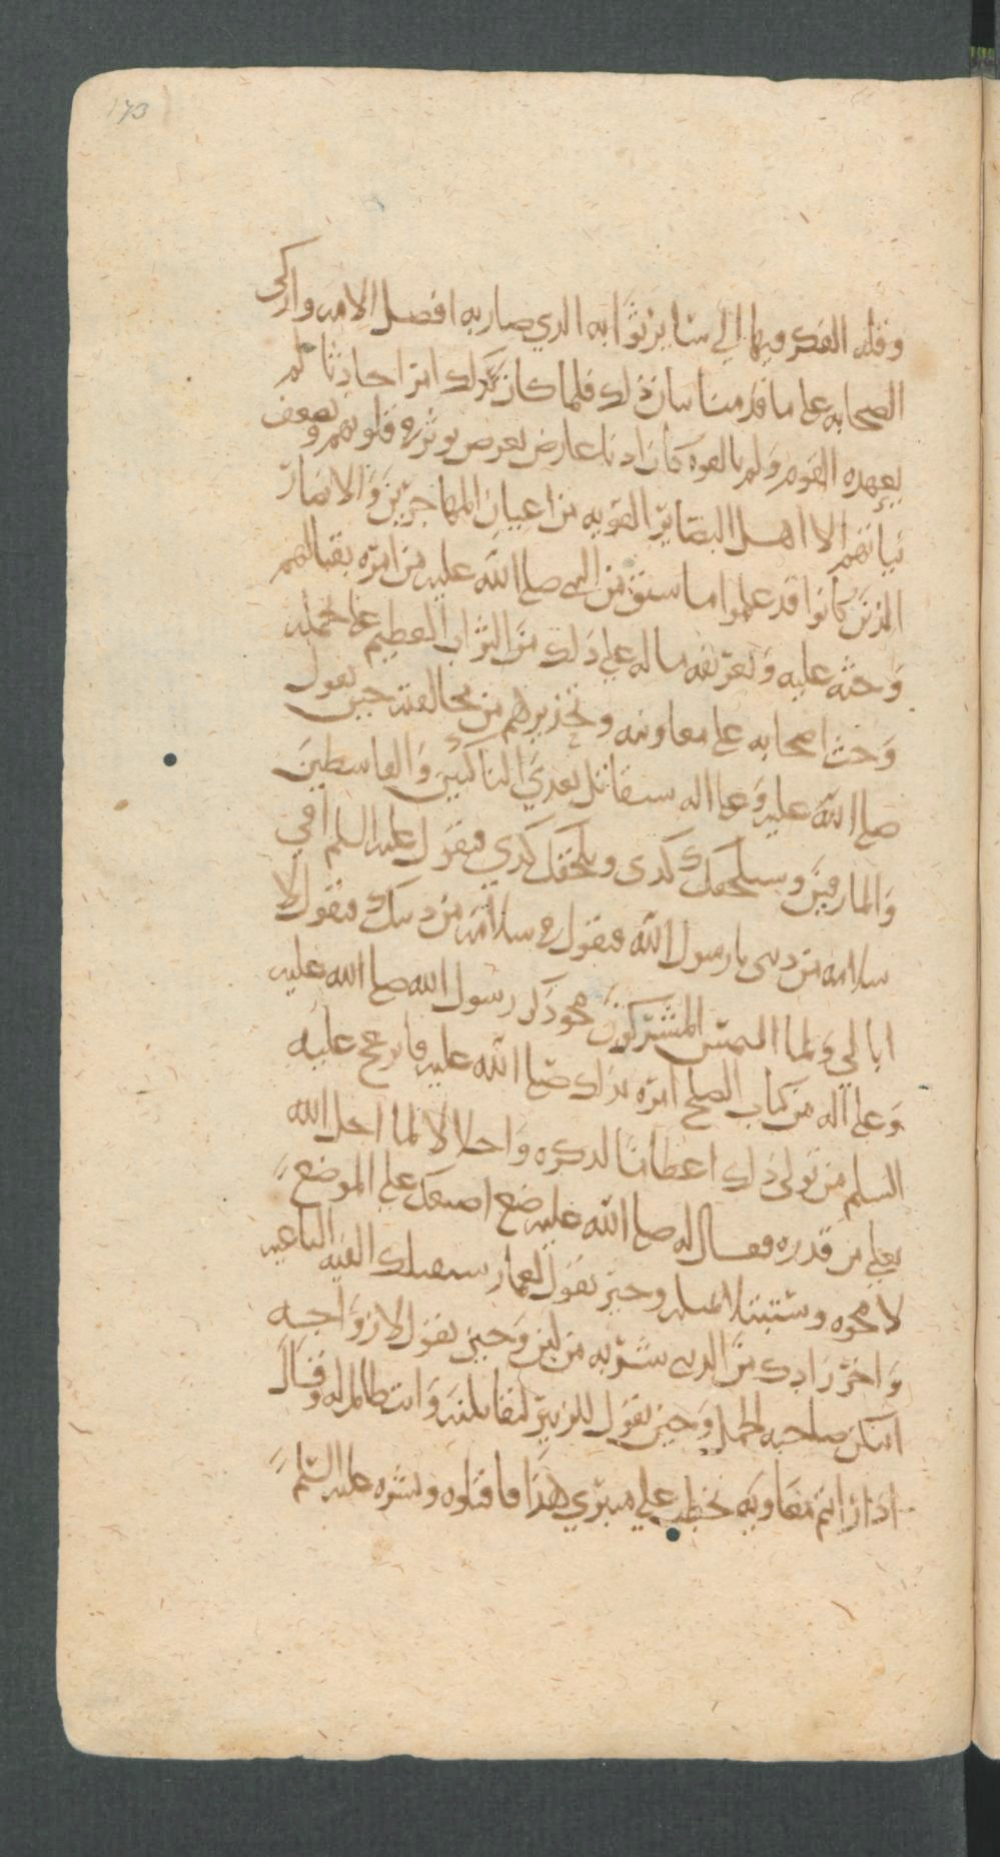 173
وقله الفكر فيها الي سائر ثوابه الذي صار به افضل الامه وازكى
الصحابه على ما قدمنا بيان ذلك فلما كان كذلك امرا حادثا لم
يعهده القوم ولم يالفوه كان ادنا عارض يعرض يوثر في قلوبهم ويضعف
نياتهم الا اهل البصائر القويه من اعيان المهاجرين والانصار
الذين كانوا قد علموا ما سبق من النبي صلى الله عليه من امره بقتالهم
وحثه عليه وتعريفه ماله على ذلك من الثواب العظيم على تحمله
وحث اصحابه على معاونته وتحذيرهم من مخالفته حين يقول
صلى الله عليه وعلى اله ستقاتل بعدي الناكثين والقاسطين
والمارقين وسيلحقك كدى ويلحقك كدي فيقول عليه السلم افي
سلامه من ديني يا رسول الله فيقول في سلامة من دينك فيقول لا
ابالي ولما التمس المشركون محو ذكر رسول الله صلى الله عليه
وعلى آله من كتاب الصلح امره بذلك صلى الله عليه فامتنع عليه
السلم من تولى ذلك اعظاما لذكره واجلالا لما اجل الله
تعلي من قدره فقال له صلى الله عليه ضع اصبعك على الموضع
لامحوه وستبتلا بمثله وحين يقول لعمار ستقتلك الفيه الباغيه
واخر زادك من الدنيا شربه من لبن وحين يقول لازواجه
ايتكن صاحبه الجمل وحين يقول للزبير لتقاتلنه وانت ظالم له وقال
اذا رايتم معاويه يخطب علي منبري هذا فاقتلوه وبشره عليه السلم